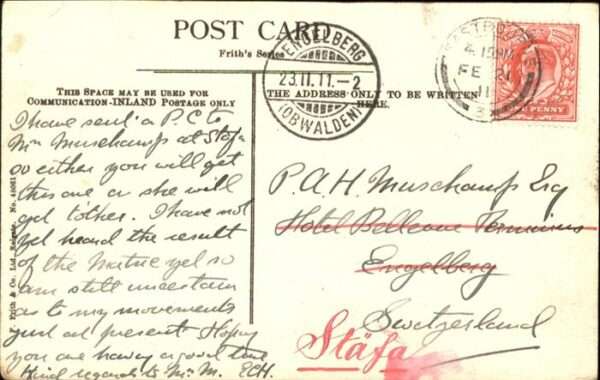 POST CARD
Frith's Series
THIS SPACE MAY BE USED FOR
COMMUNICATION-INLAND POSTAGE ONLY
THE ADDRESS ONLY TO BE WRITTEN
HERE.
ENGELBERG
23.II.11.-2
(OBWALDEN)
EASTBOURNE
4 15 PM
FE 21
11
ONE PENNY
I have sent a P.C to
Mrs Muschamp at Stäfa
so either you will get
this one or she will
get t'other. I have not
yet heard the result
of the yet so
am still uncertain
as to my movements
just at present Hoping
you are having a good time
Kind regards to Mrs M. ECH.
P.A.H. Muschamp Esq
Hotel Bellevue Terminus
Engelberg
Switzerland
Stäfa
F. Frith & Co. Ltd., Reigate. No.